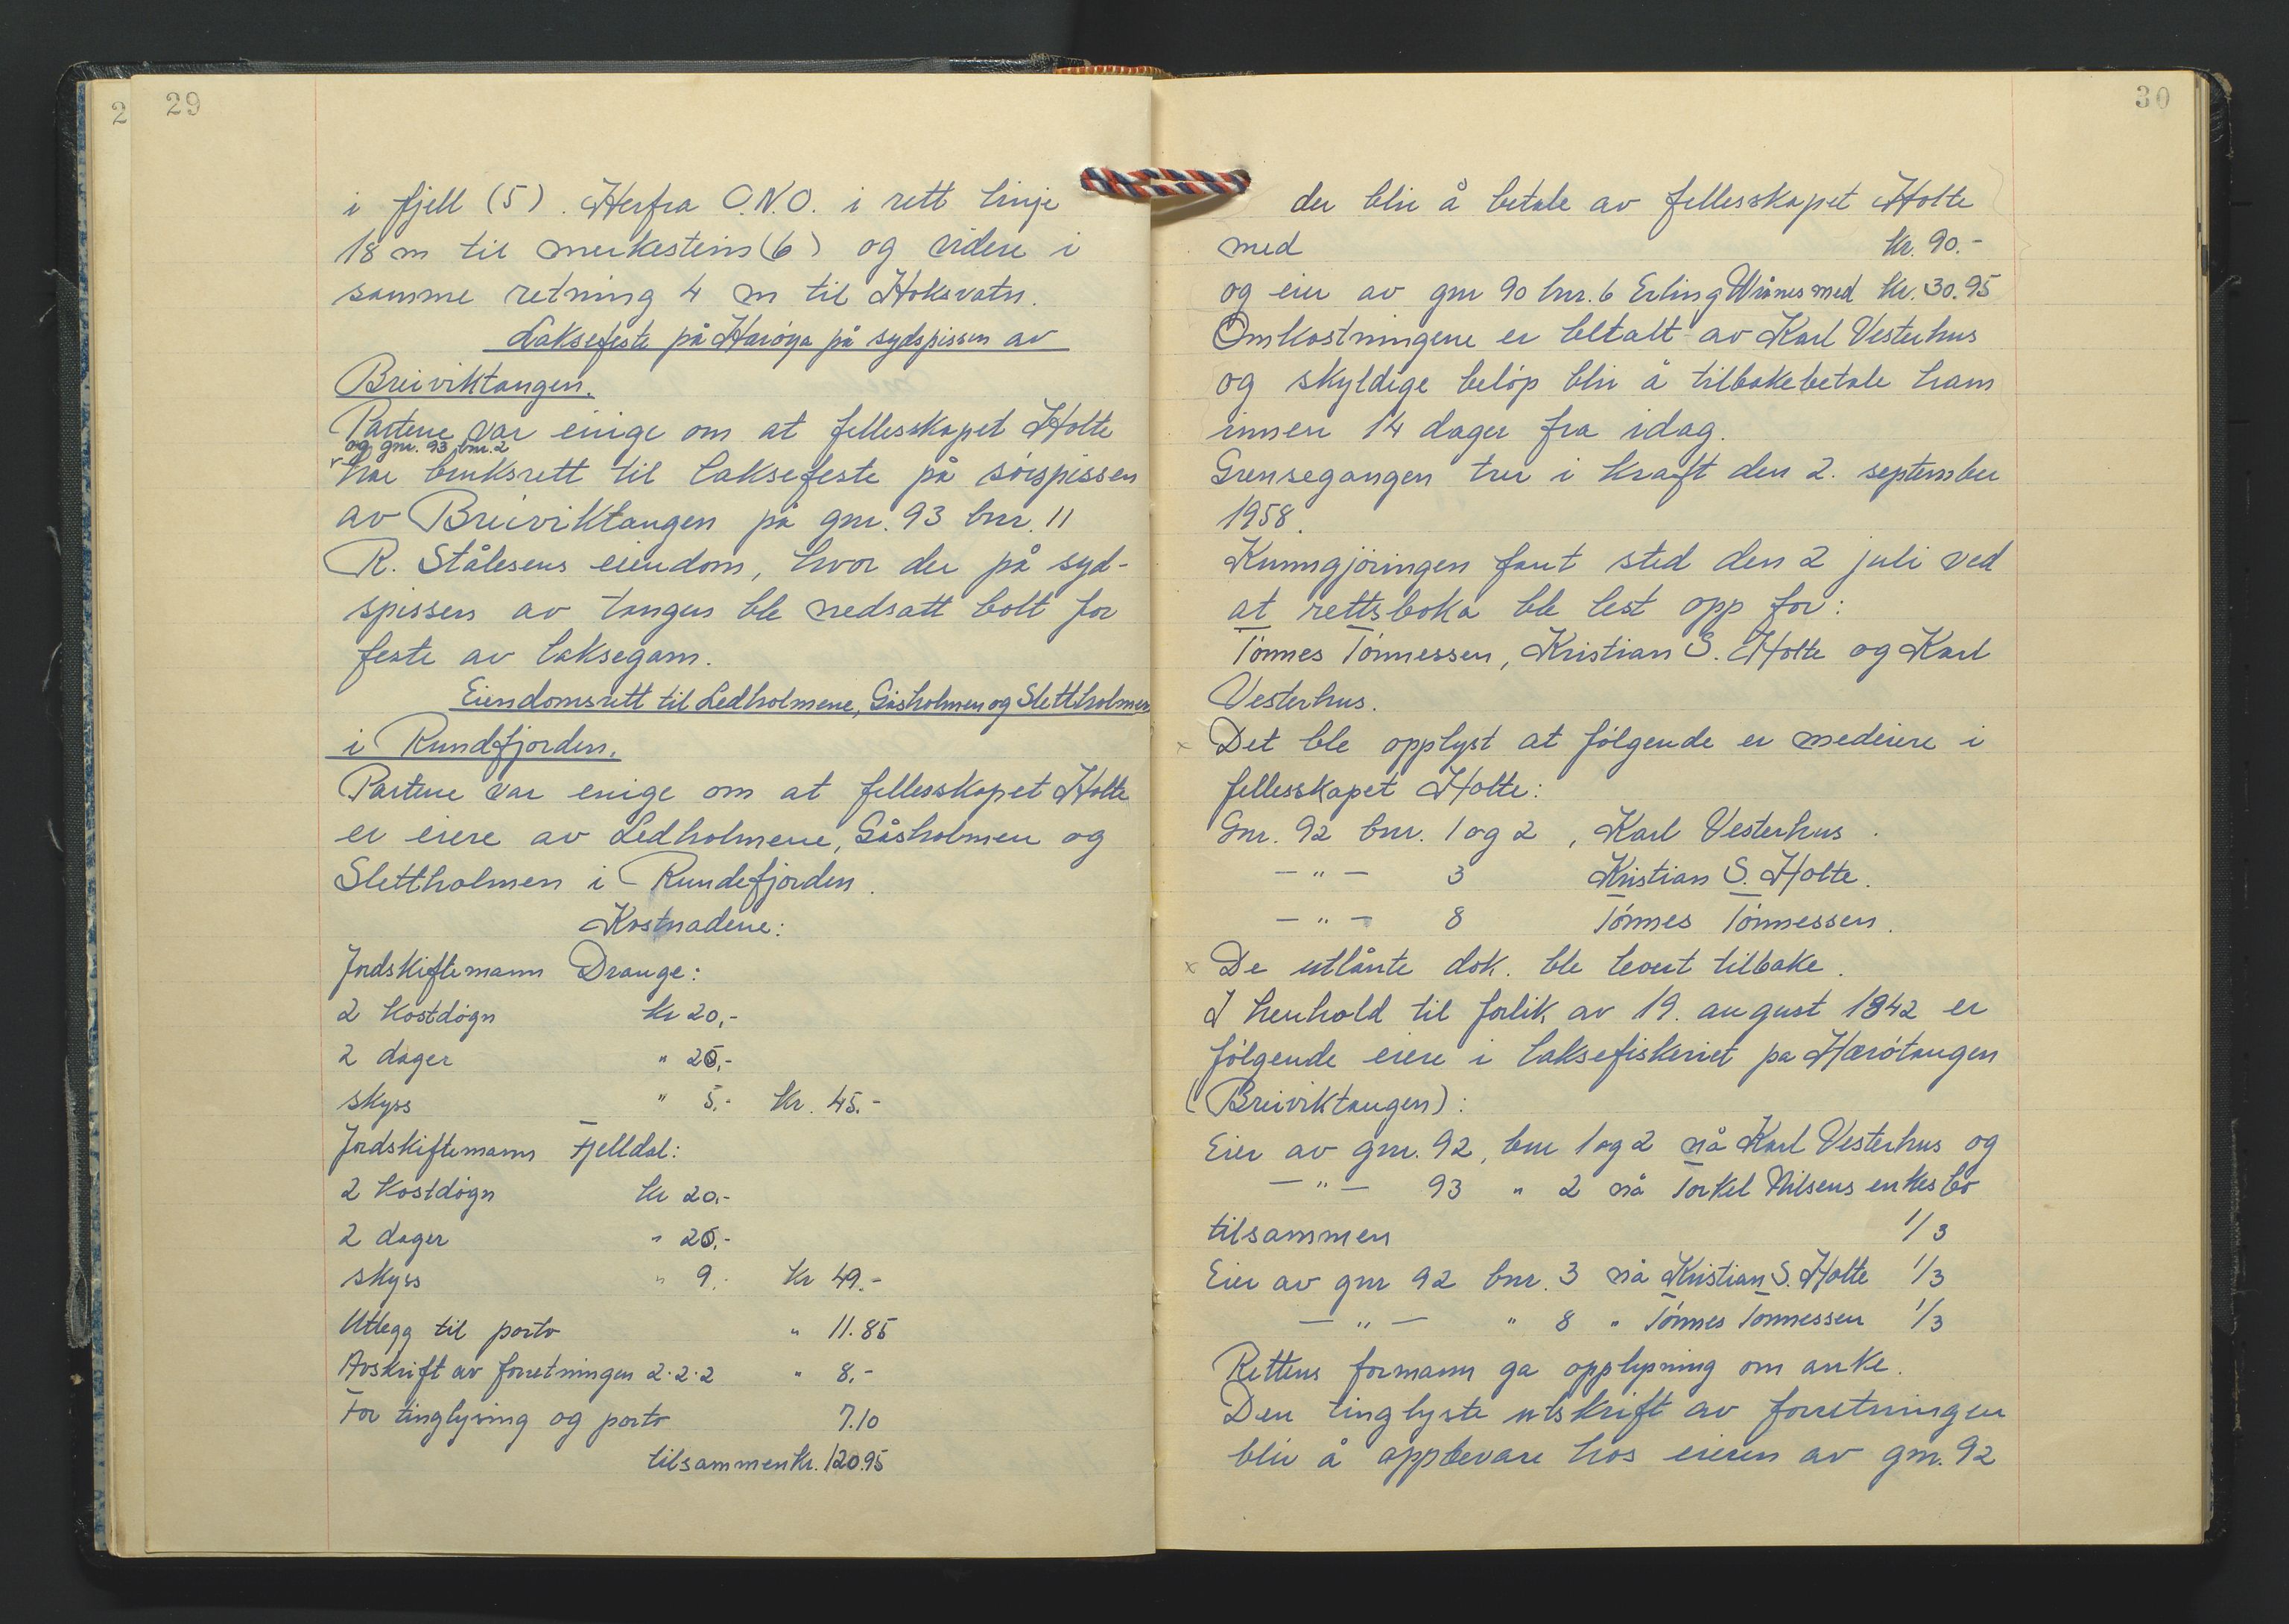 2
29
i fjell (5). Herfra O.N.O. i rett linje
18 m til merkestein (6) og videre i
samme retning 4 m til Hoksvatn.
Laksefeste på Harøya på sydspissen av
Breiviktangen.
Partene var enige om at fellesskapet Holte
og gnr. 93 bnr. 2
har bruksrett til laksefeste på sørspissen
av Breiviktangen på gnr. 93 bnr. 11
R. Stålesens eiendom, hvor der på syd-
spissen av tangen ble nedsatt bolt for
feste av laksegarn.
Eiendomsrett til Ledholmene, Gåsholmen og Slettholmen
i Rundefjorden.
Partene var enige om at fellesskapet Holte
er eiere av Ledholmene, Gåsholmen og
Slettholmen i Rundefjorden.
Kostnadene:
Jordskiftemann Drange:
2 kostdøgn kr 20,-
2 dager " 20,-
skyss " 5.- kr. 45.-
Jordskiftemann Fjelldal:
2 kostdøgn kr 20.-
2 dager " 20,-
skyss " 9.- kr 49.-
Utlegg til porto " 11.85
Avskrift av forretningen 2·2·2 " 8.-
For tinglysing og porto 7.10
tilsammen kr. 120.95
30
der blir å betale av fellesskapet Holte
med kr. 90.-
og eier av gnr 90 bnr. 6 Erling Wånes med kr. 30.95
Omkostningene er betalt av Karl Vesterhus
og skyldige beløp blir å tilbakebetale ham
innen 14 dager fra idag.
Grensegangen trer i kraft den 2. september
1958.
Kunngjøringen fant sted den 2 juli ved
at rettsboka ble lest opp for:
Tønnes Tønnessen, Kristian S. Holte og Karl
Vesterhus.
x Det ble opplyst at følgende er medeiere i
fellesskapet Holte:
Gnr. 92 bnr. 1 og 2, Karl Vesterhus.
— " — 3 Kristian S. Holte.
— " — 8 Tønnes Tønnessen.
x De utlånte dok. ble levert tilbake.
I henhold til forlik av 19. august 1842 er
følgende eiere i laksefiskeriet på Hærøtangen
(Breiviktangen):
Eier av gnr. 92, bnr 1 og 2 nå Karl Vesterhus og
— " — 93 " 2 nå Torkel Nilsens enkes bo
tilsammen 1/3
Eier av gnr 92 bnr. 3 nå Kristian S. Holte 1/3
— " — " 8 " Tønnes Tønnessen 1/3
Rettens formann ga opplysning om anke.
Den tinglyste utskrift av forretningen
blir å oppbevare hos eieren av gnr. 92